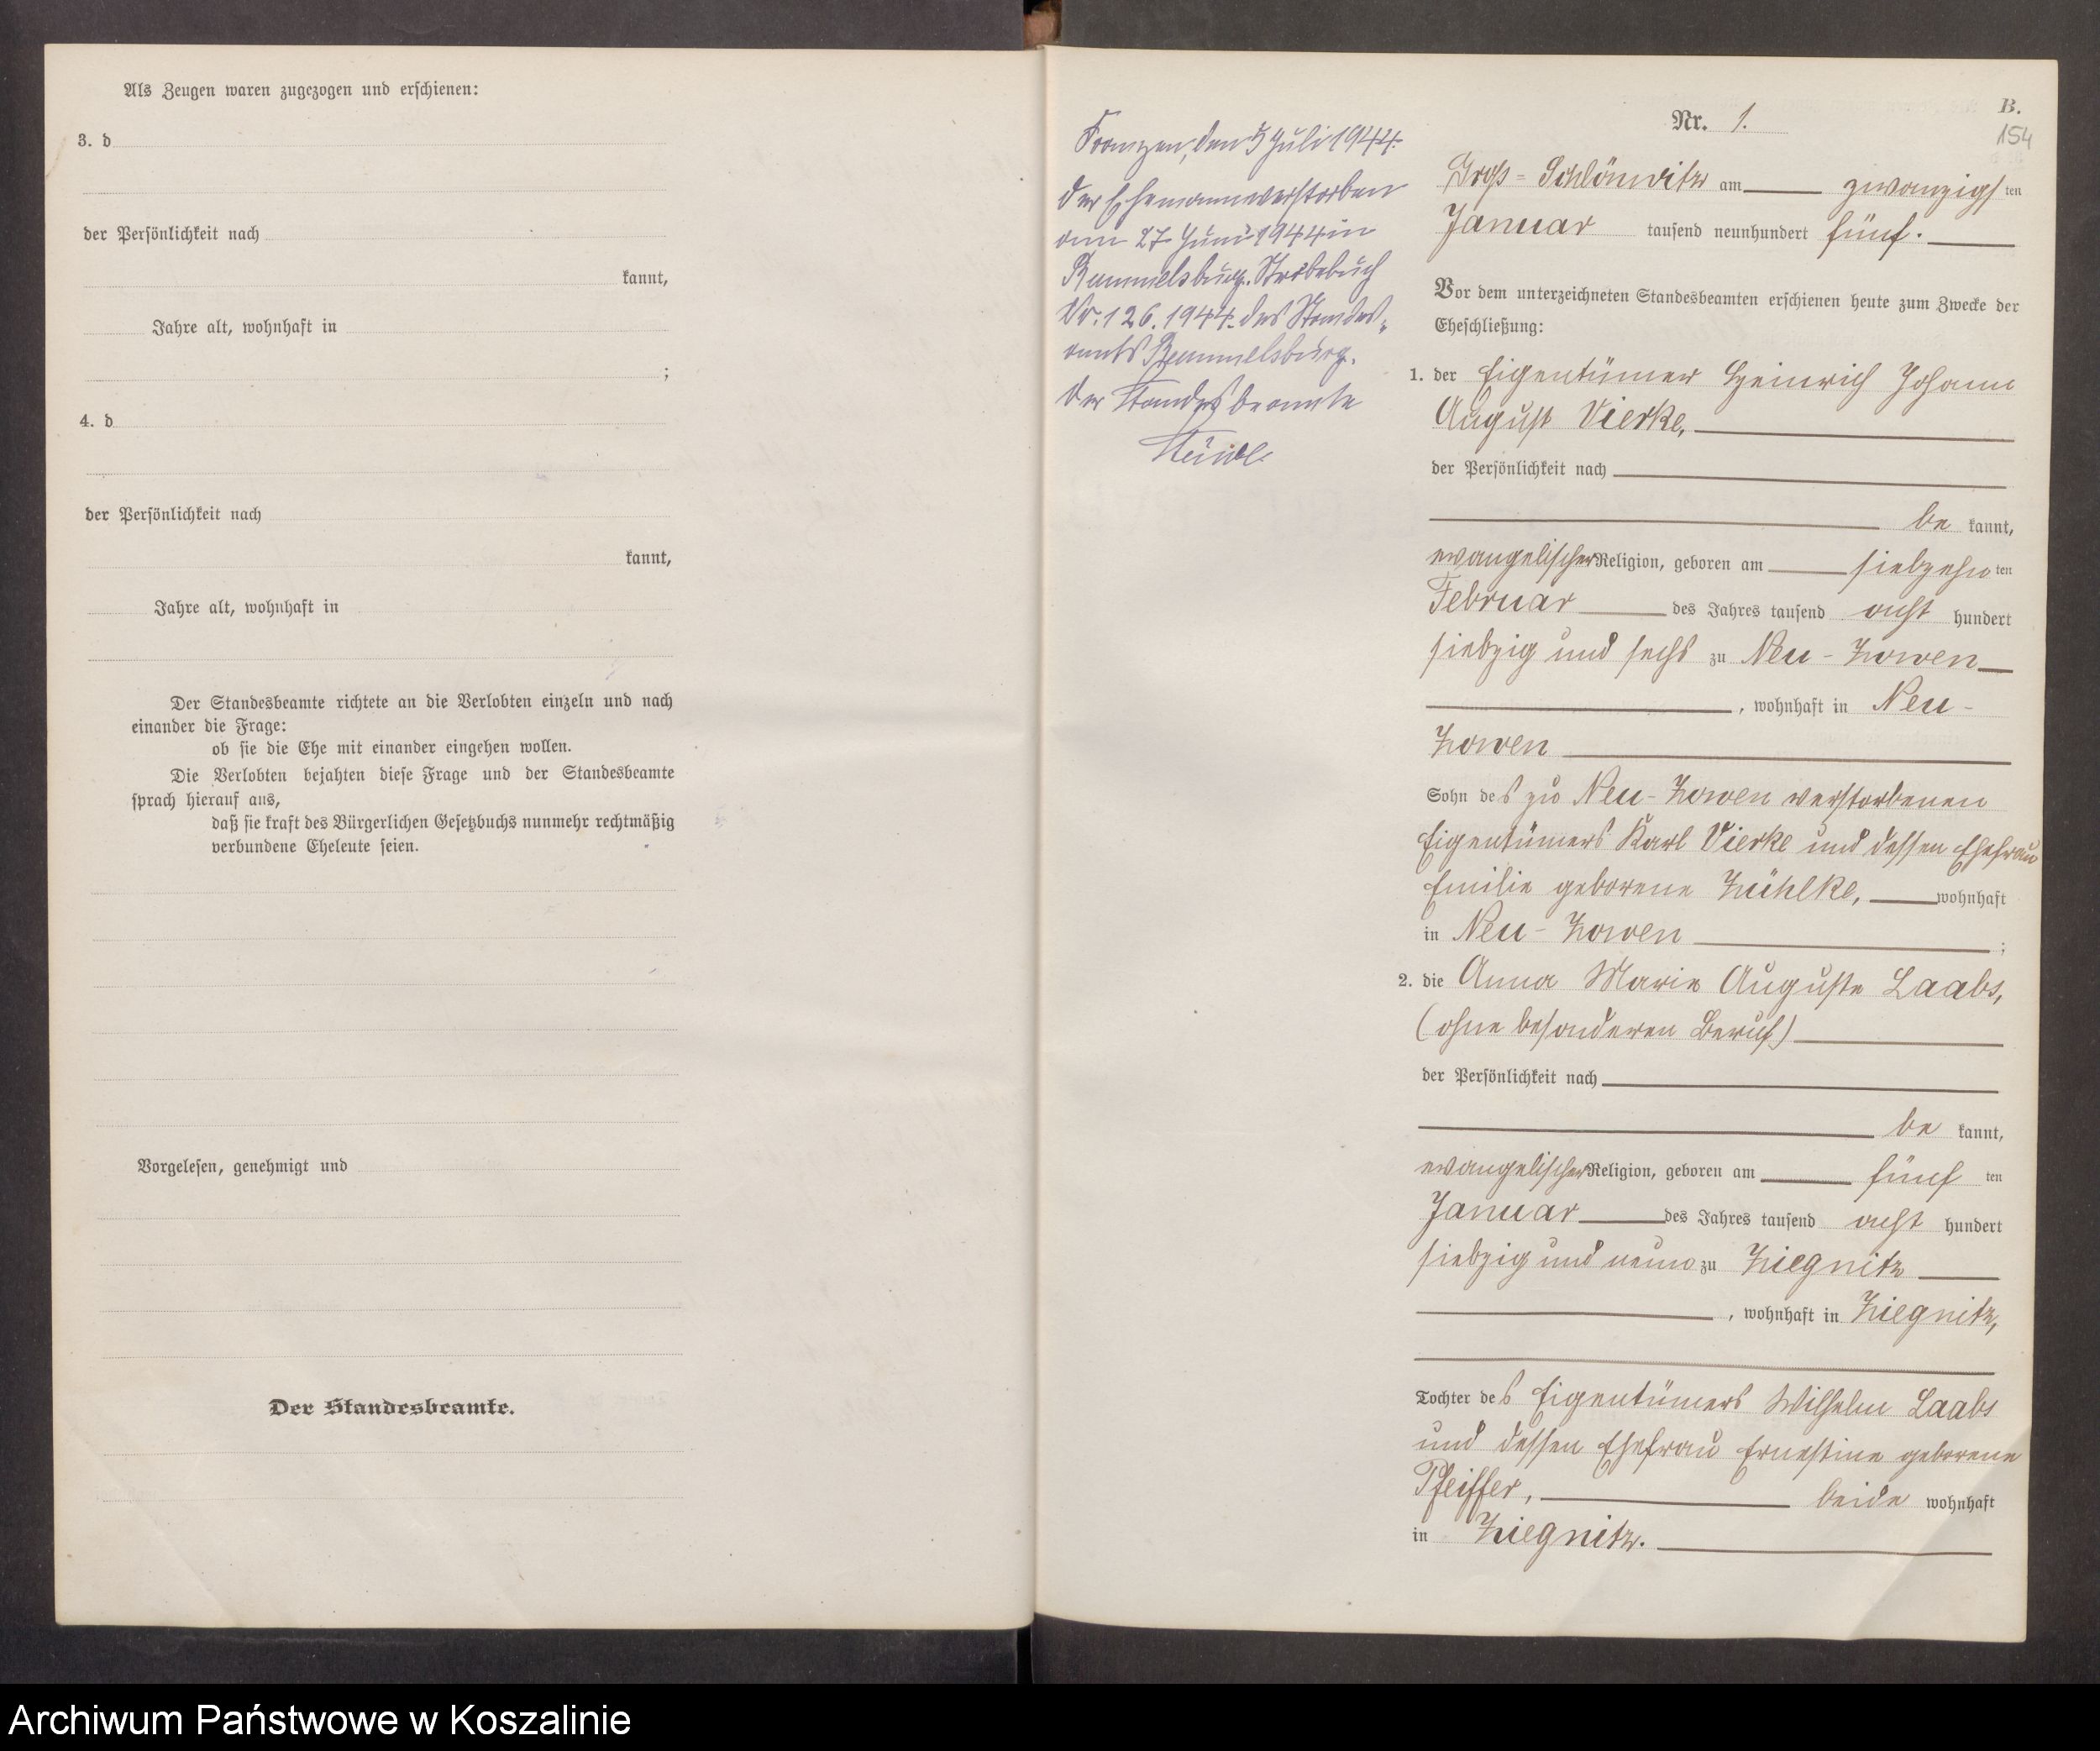 Als Zeugen waren zugezogen und erschienen:
3. d
der Persönlichkeit nach
kannt,
Jahre alt, wohnhaft in
;
4. d
der Persönlichkeit nach
kannt,
Jahre alt, wohnhaft in
Der Standesbeamte richtete an die Verlobten einzeln und nach
einander die Frage:
ob sie die Ehe mit einander eingehen wollen.
Die Verlobten bejahten diese Frage und der Standesbeamte
sprach hierauf aus,
daß sie kraft des Bürgerlichen Gesetzbuchs nunmehr rechtmäßig
verbundene Eheleute seien.
Vorgelesen, genehmigt und
Der Standesbeamte.
den 5 Juli 1944.
der Ehemann verstorben
am 27 Juni 1944 in
Rummelsburg. Sterbebuch
Nr. 126. 1944. des Standes-
amts Rummelsburg.
Der Standesbeamte
B.
154
Nr. 1.
Groß-Schlönwitz am zwanzigsten
Januar tausend neunhundert fünf.
Vor dem unterzeichneten Standesbeamten erschienen heute zum Zwecke der
Eheschließung:
1. der Eigentümer Heinrich Johann
August Vierke,
der Persönlichkeit nach
be kannt,
evangelischer Religion, geboren am siebzehn ten
Februar des Jahres tausend acht hundert
siebzig und sechs zu Neu-Zowen
, wohnhaft in Neu-
Zowen
Sohn des zu Neu-Zowen verstorbenen
Eigentümers Karl Vierke und dessen Ehefrau
Emilie geborene Zühlke, wohnhaft
in Neu-Zowen ;
2. die Anna Marie Auguste Laabs,
(ohne besonderen Beruf)
der Persönlichkeit nach
be kannt,
evangelischer Religion, geboren am fünf ten
Januar des Jahres tausend acht hundert
siebzig und neun zu Ziegnitz
, wohnhaft in Ziegnitz,
Tochter des Eigentümers Wilhelm Laabs
und dessen Ehefrau Ernestine geborene
Pfeiffer, beide wohnhaft
in Ziegnitz.
Archiwum Państwowe w Koszalinie